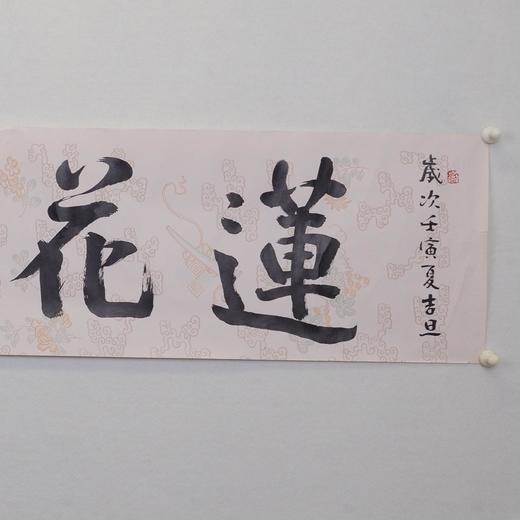 歲次壬寅夏吉旦
蓮花